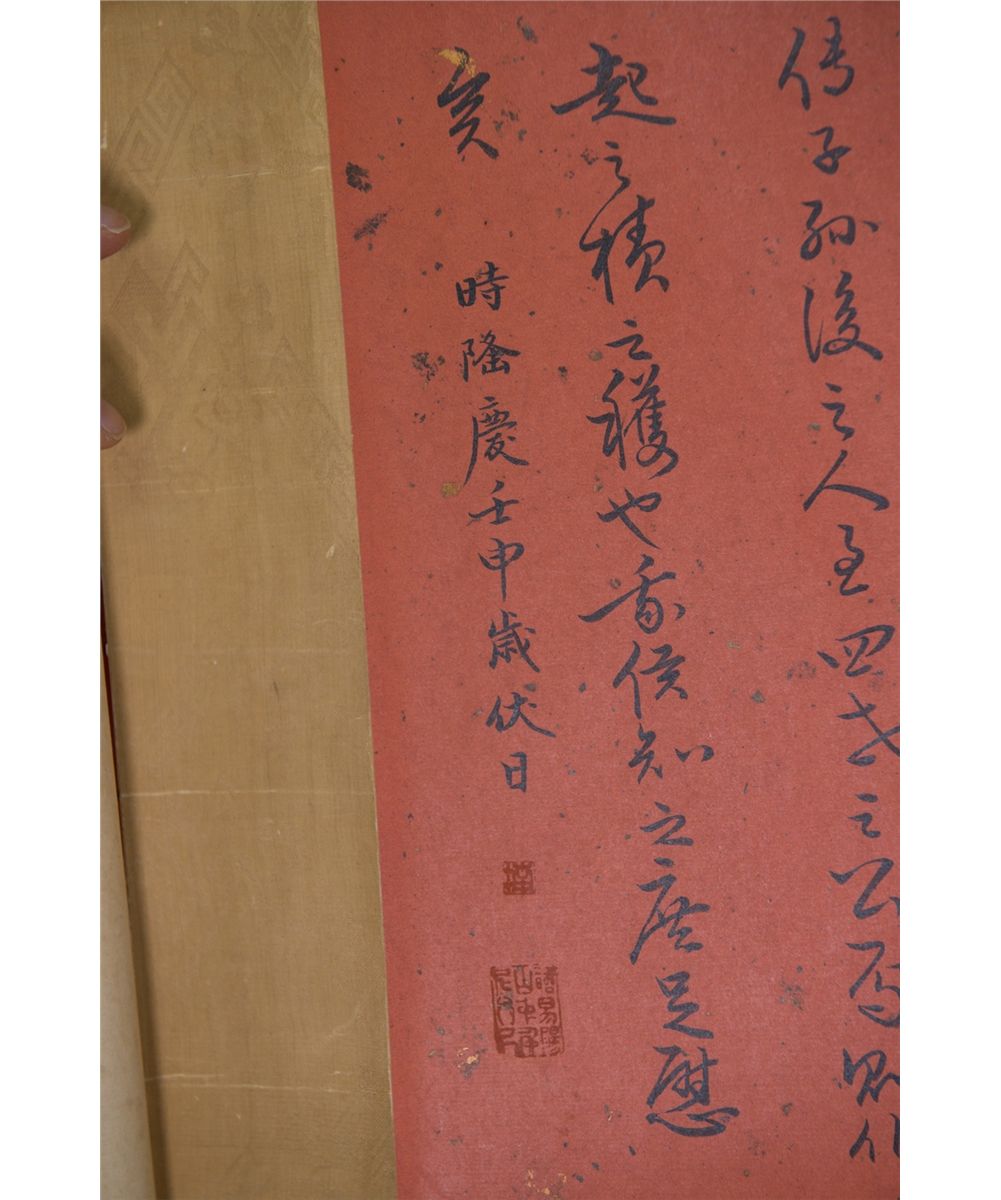 傳子孫後之人至四世之
起之積之穫也我侯知之庶足慰
矣 時隆慶壬申歲伏日